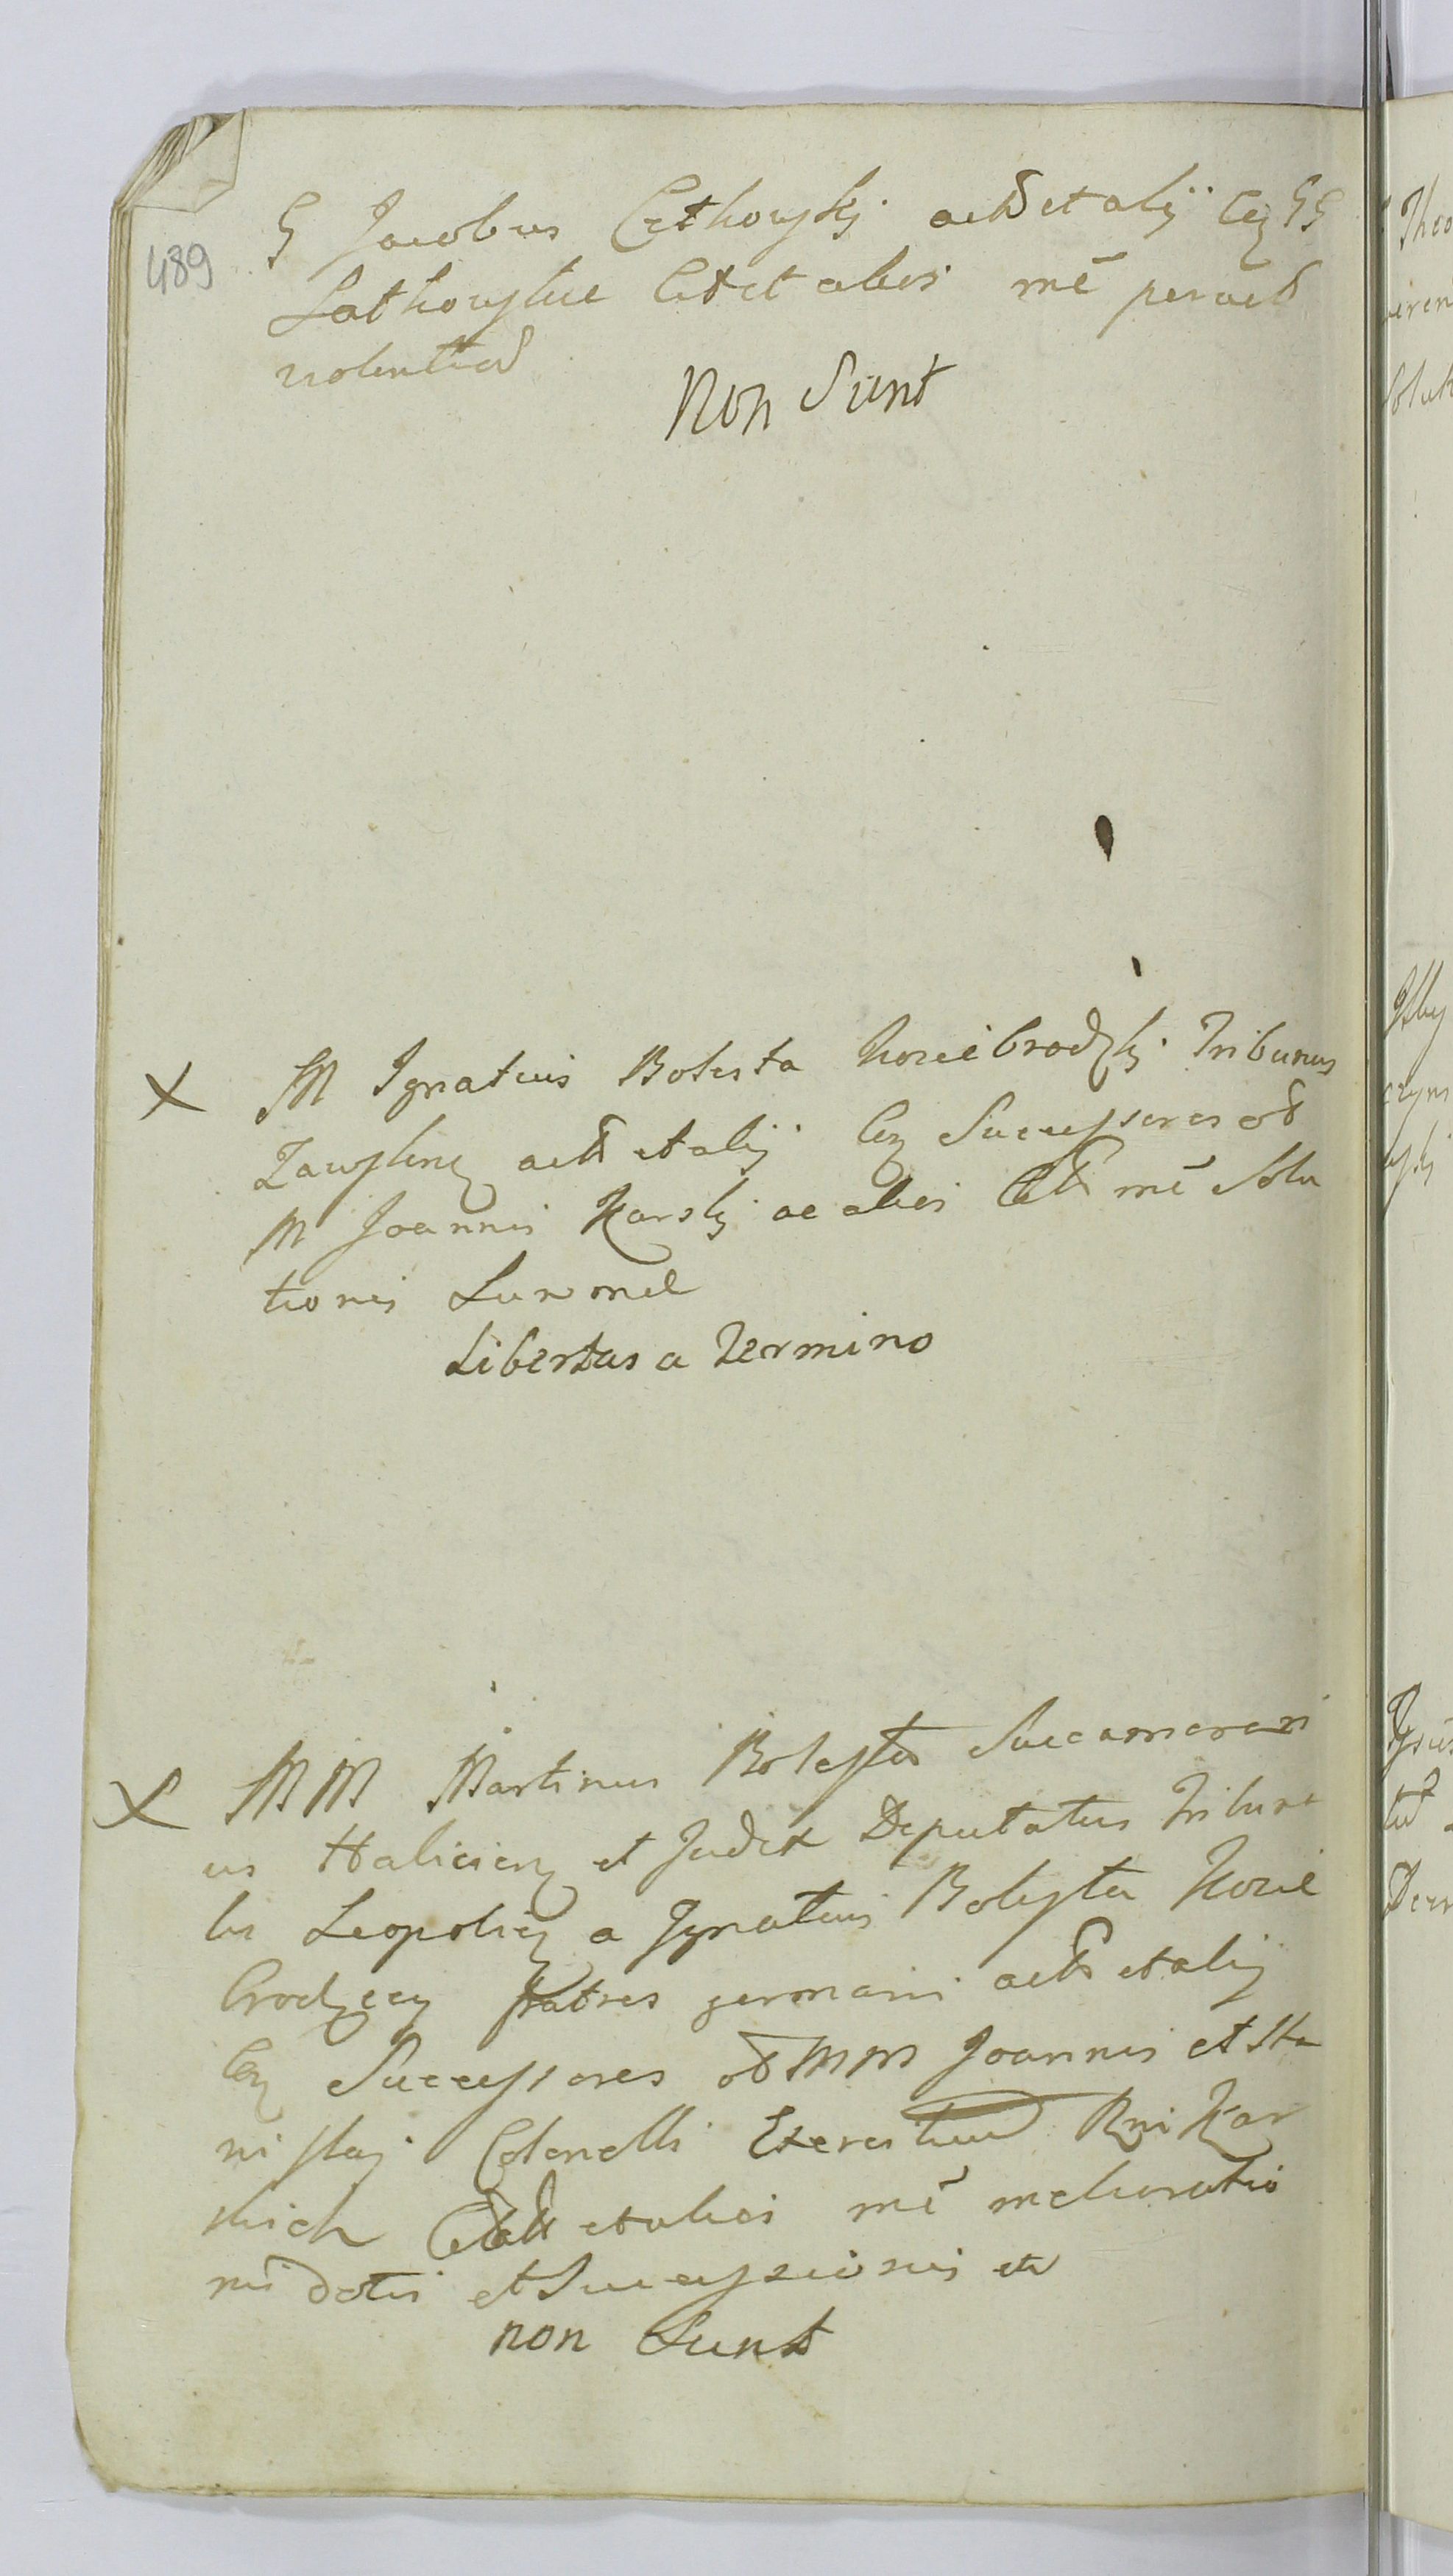 489
G Jacobus Cethowskj actt et alij Ccz GG
Lathowskie Citt et alios mē peractt
violentiar
Non Sunt
X M Ignatius Bolesta Koziebrodzkj Tribunus
Zawslensz actt et alij Ccz Successores ott
M Joannis Karskj ac alios Citt mē Solu
tionis Summae
Libertas a Termino
X MM Martinus Bolesta Succamerari
us Haliciensz et Judex Deputatus Tribuna
lis Leopoliensz a Ignatius Bolesta Kozie
brodzccy fratres germani actt et alij
Ccz Successores ott MM Joannis et Sta
nislaj Colonelli Exercituum Rgni Kar
skich Citt et alios mē melioratio
nis dotis et Successionis etc
non Sunt